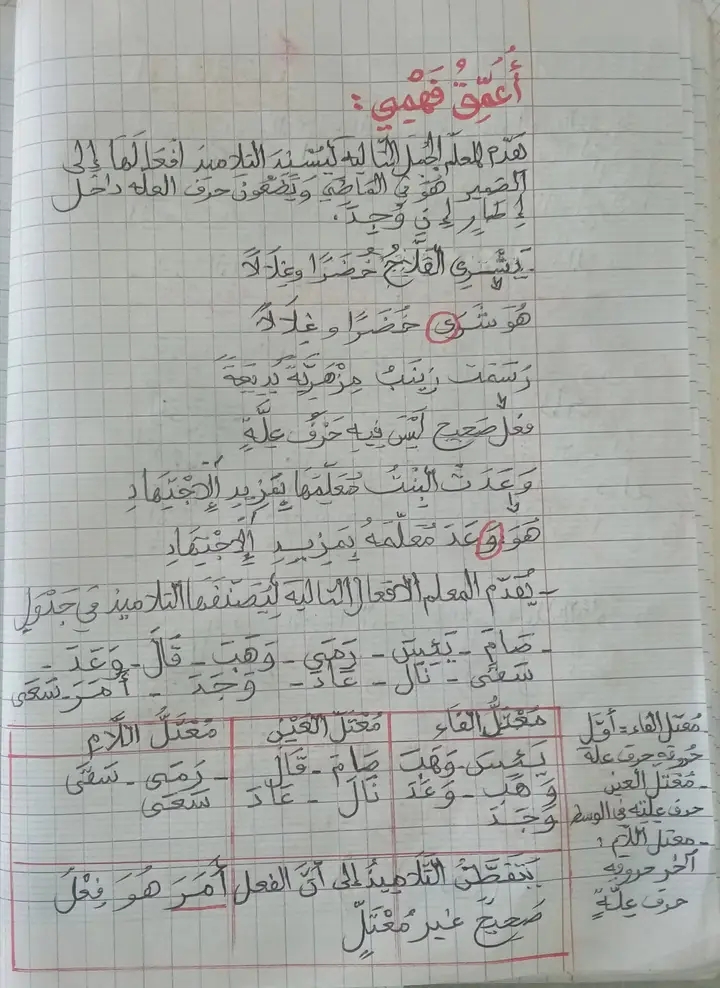 أُعَمِّقُ فَهْمِي :
يقدّم المعلّم الجُمَل التّالية لِيُسْنِدَ التلاميذ أفعالَهَا إلى
الضّمير هُوَ في المَاضِي وَيَضَعُونَ حرف العلّة داخل
إِطَارٍ إِنْ وُجِدَ.
- يَشْتَرِي الفَلَّاحُ خُضَرًا وغِلَالًا
هُوَ شَرَى خُضَرًا و غِلَالًا
رَسَمَت زَيْنَبُ مِزْهَرِيَّةً بَدِيعَةً
فعل صَحِيح لَيْسَ فِيهِ حَرْفُ عِلَّةٍ
وَعَدَتْ البِنْتُ مُعَلِّمَهَا بِمَزِيدِ الاِجْتِهَادِ
هُوَ وَعَدَ مُعَلِّمَهُ بِمَزِيدِ الاِجْتِهَادِ
- يُقَدّم المعلم الافعال التالية لِيُصَنّفَهَا التلاميذ في جَدْوَلٍ
- صَامَ - يَئِسَ - رَمَى - وَهَبَ - قَالَ - وَعَدَ -
سَقَى - نَالَ - عَادَ - وَجَدَ - أَمَرَ - سَعَى
مُعْتَلُّ الفَاء مُعْتَلُّ العَيْن مُعْتَلُّ اللَّام
يَئِسَ - وَهَبَ صَامَ - قَالَ - رَمَى - سَقَى
وَهَبَ - وَعَدَ نَالَ - عَادَ سَعَى
وَجَدَ
يَتَفَطَّنُ التَّلَامِيذُ إلى أَنَّ الفعل أَمَرَ هُوَ فِعْلٌ
صَحِيحٌ غير مُعْتَلٍّ
مُعْتَل الفاء = أَوّل
حُروفِهِ حرف علّة
- مُعْتَل العين
حرف علّته في الوسط
- معتل اللّام :
آخر حروفه
حرف عِلّةٍ